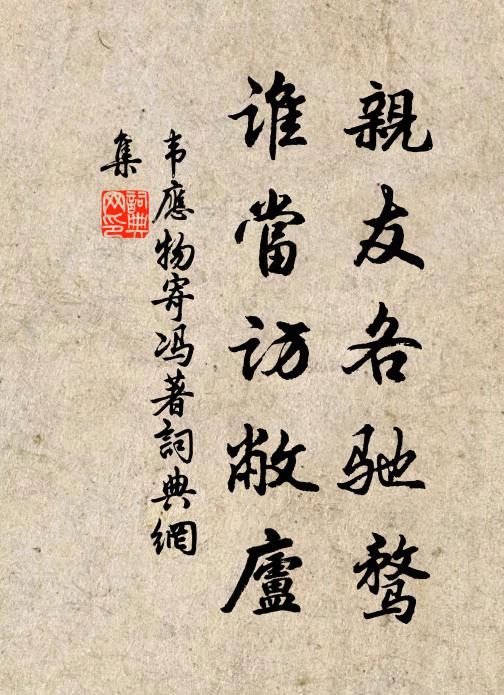 親友各驰骛
谁當访敝廬
韦應物寄冯著詞典網
集
詞典网印